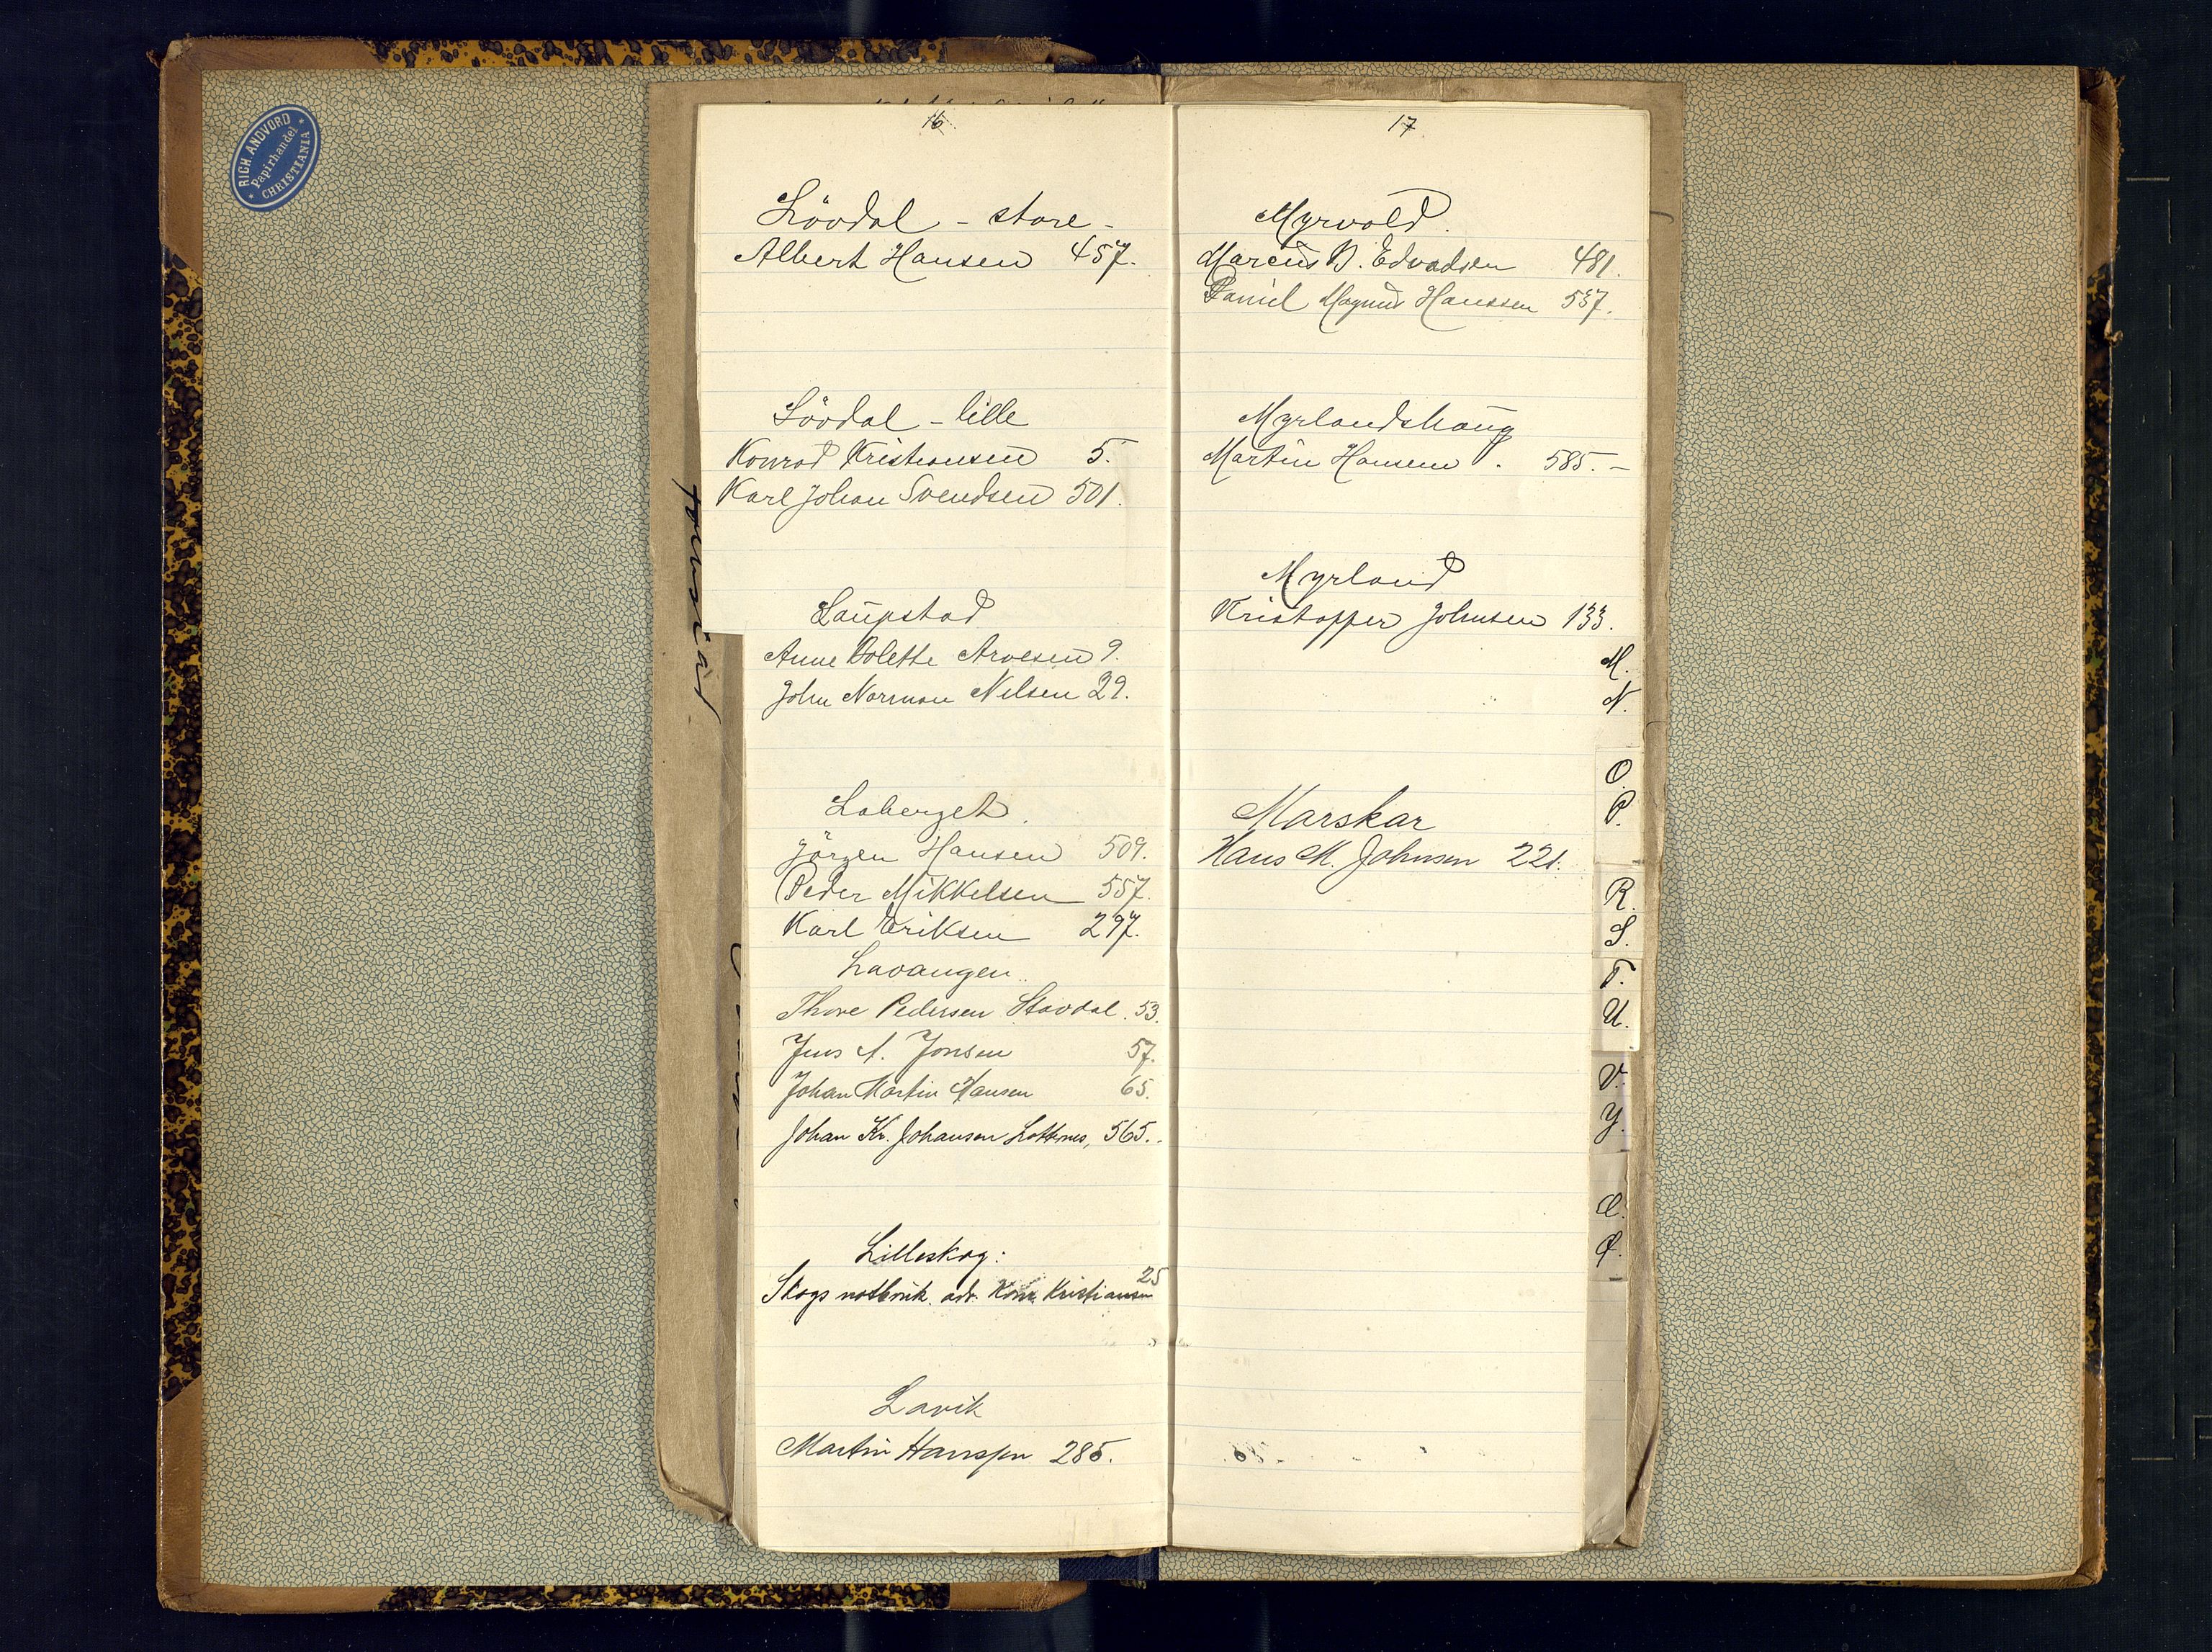 RICH. ANDVORD
Papirhandel
CHRISTIANIA
16.
Lövdal - store -
Albert Hansen 457.
Lövdal - lille
Konrad Kristiansen 5.
Karl Johan Svendsen 501.
Laupstad
Anne Bolette Arvesen 9.
John Norman Nilsen 29.
Laberget.
Jörgen Hansen 509.
Peder Mikkelsen 557.
Karl Eriksen 297.
Lavangen.
Thore Pedersen Stavdal. 53.
Jens A. Jonsen 57.
Johan Martin Hansen 65.
Johan Kr. Johansen 565.
Lilleskog:
25
Skogs notbruk. adr. Konr. Kristiansen
Lavik
Martin Hanssen 285.
17
Myrvold.
Marcus B. Edvadsen 481.
Daniel Magnus Hanssen 537.
Myrlandshaug
Martin Hansen. 585. -
Myrland
Kristoffer Johnsen 133.
Marskar
Hans M. Johnsen 221.
M.
N.
O.
P.
R.
S.
T.
U.
V.
Y.
Æ.
Ø.